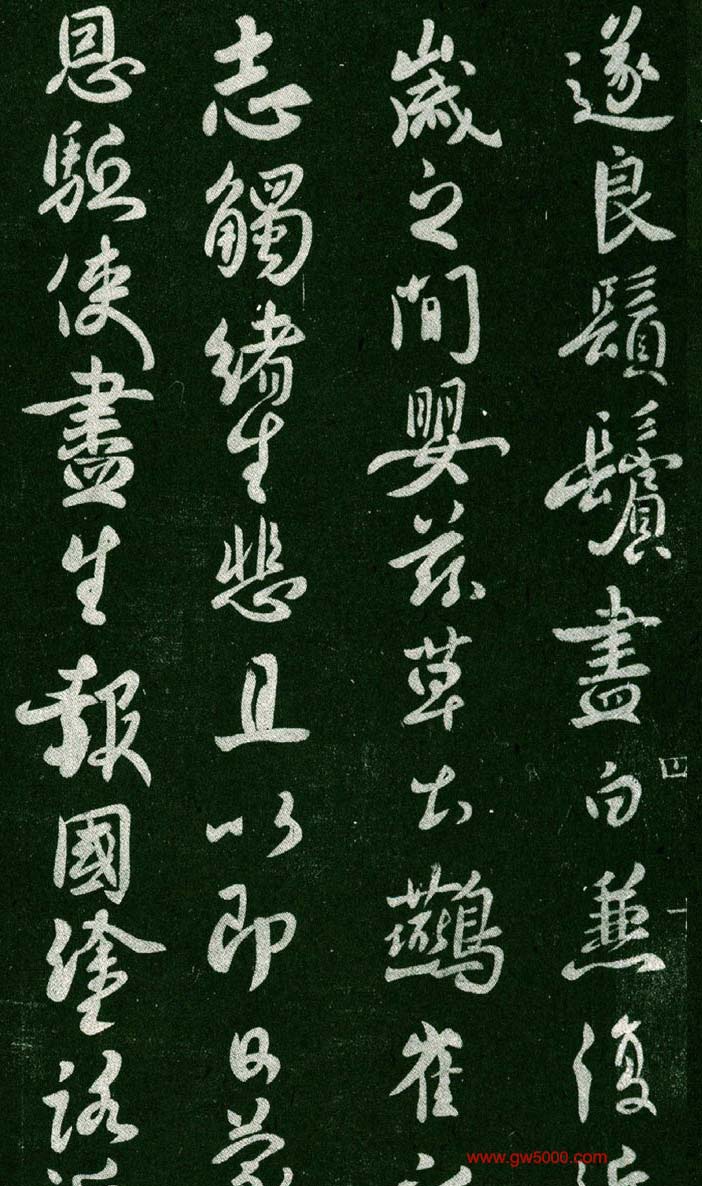 遂良鬚鬢盡白兼復近
歲之間嬰茲草土鷰雀之
志觸緒生悲且以即日蒙
恩駈使盡生報國塗路
四
一
www.gw5000.com